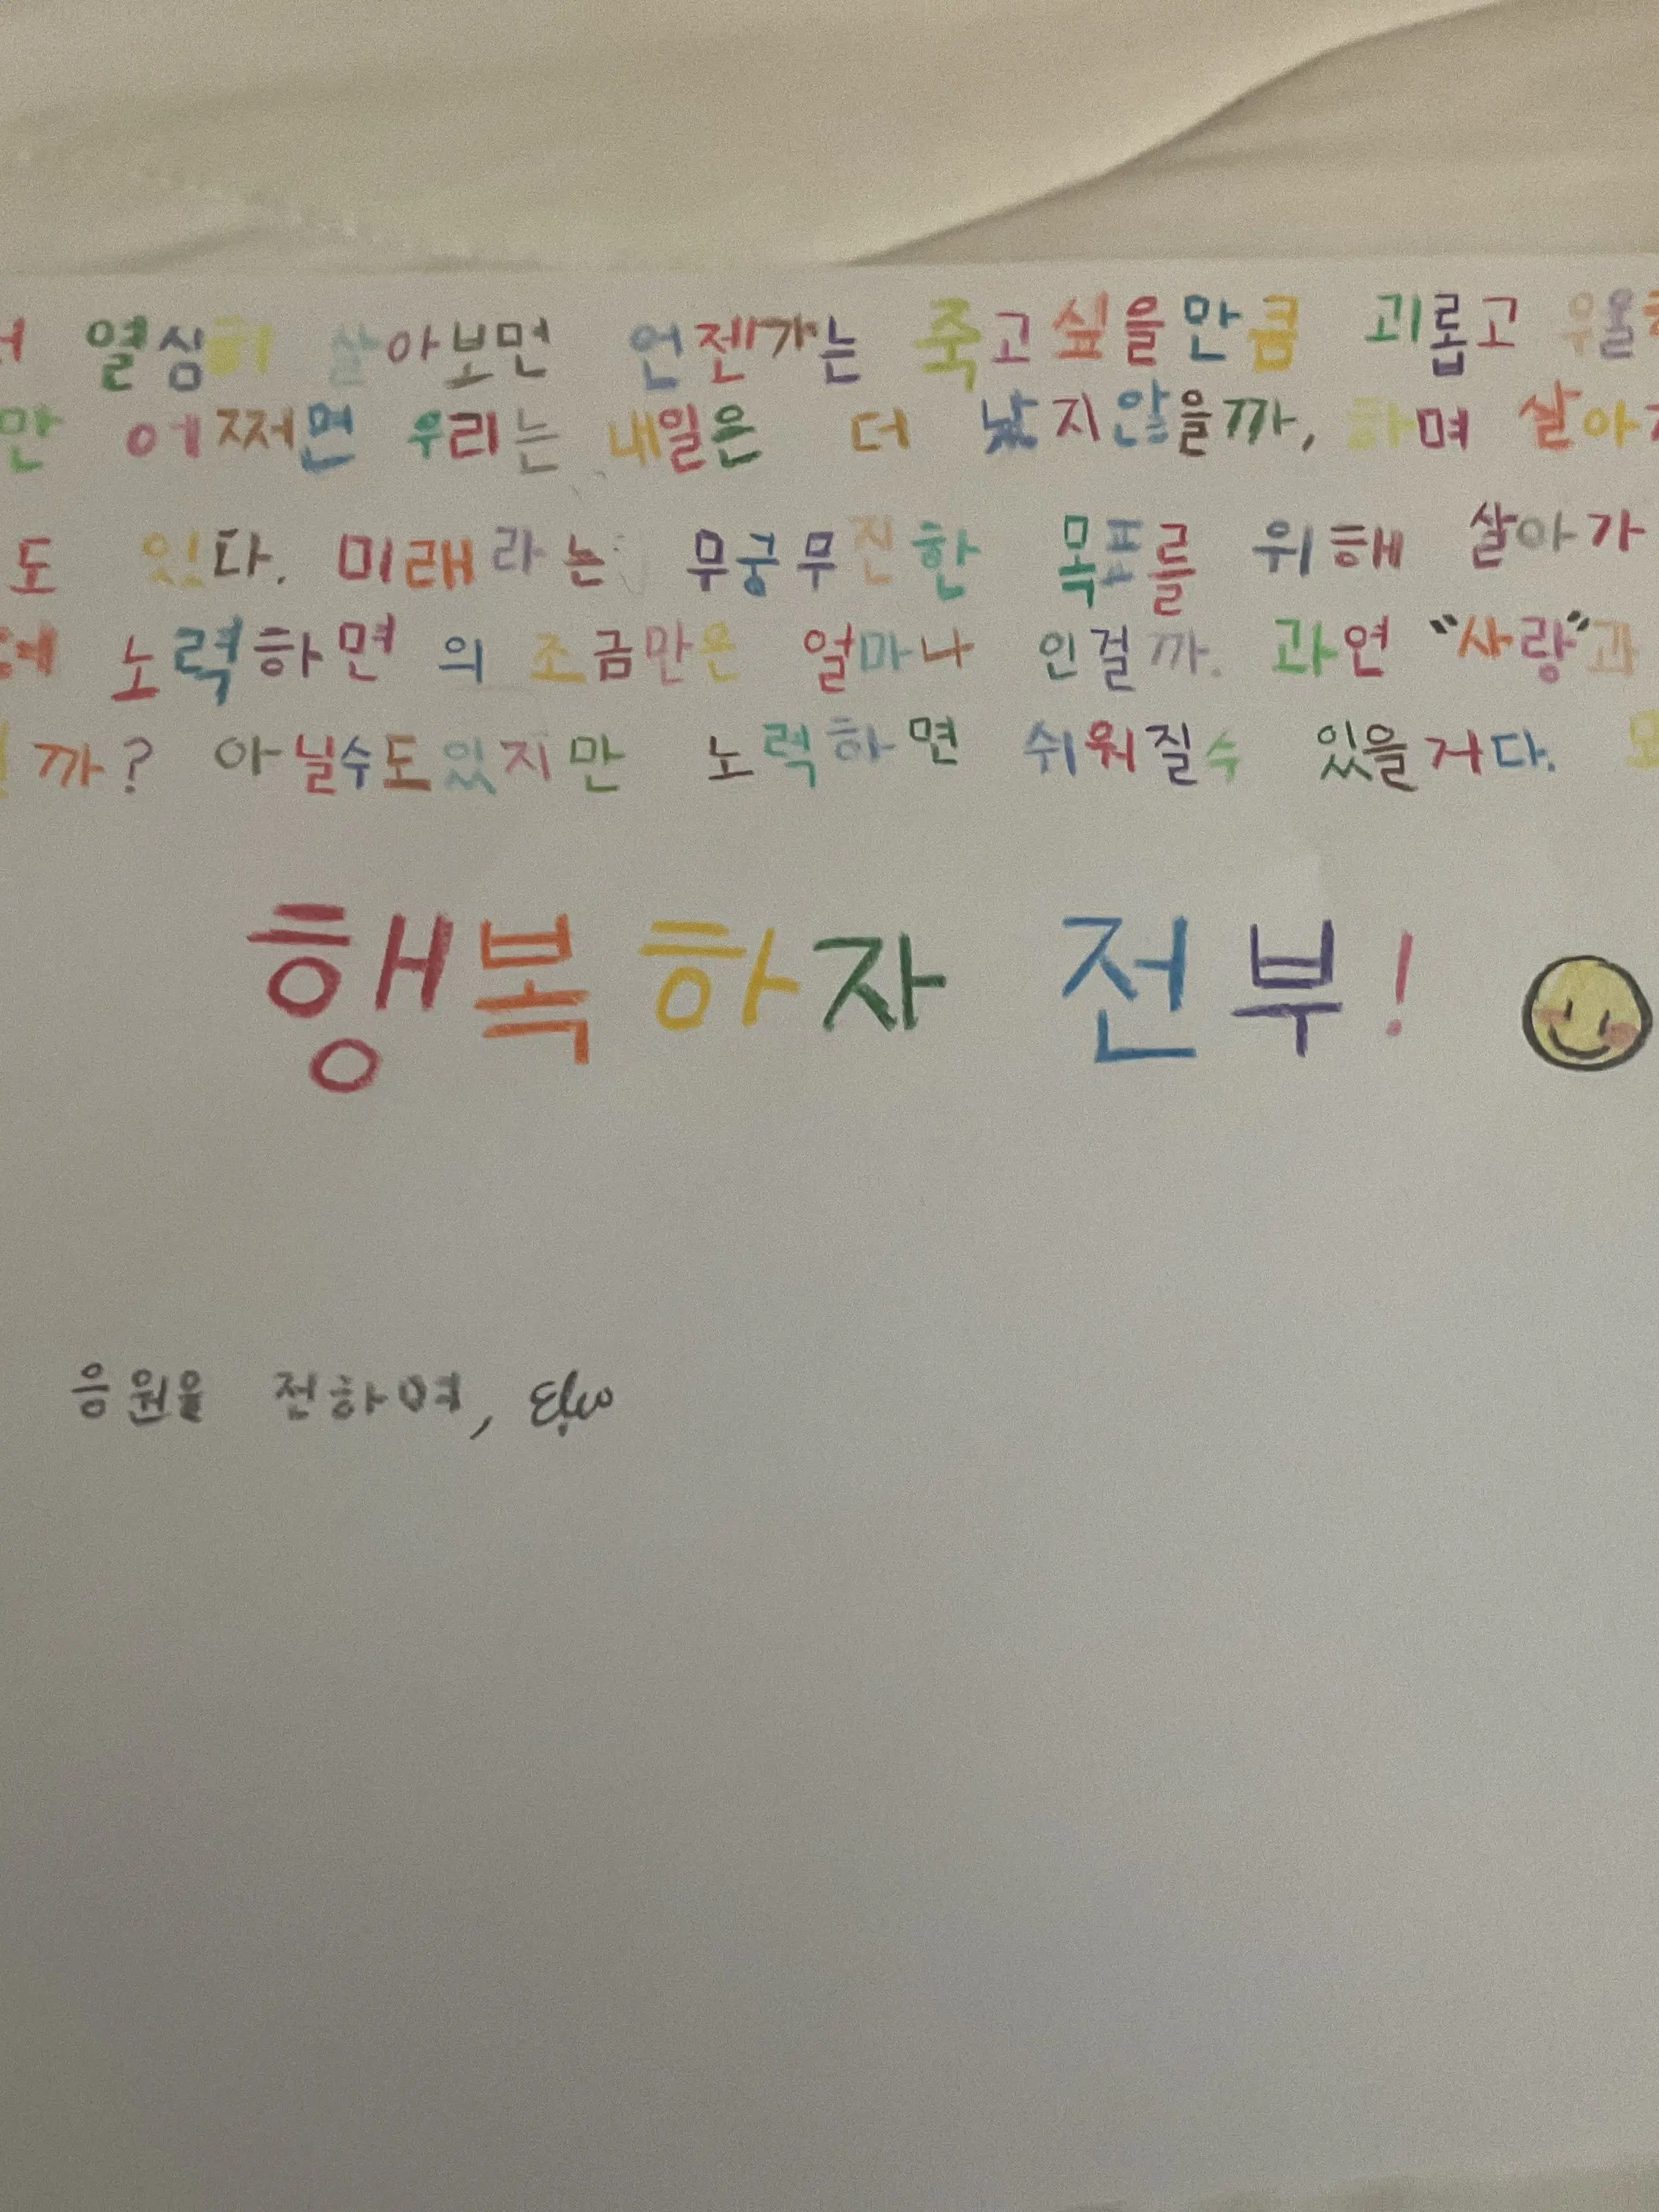 열심히 살아보면 언젠가는 죽고싶을만큼 괴롭고
만 어쩌면 우리는 내일은 더 낫지않을까, 하며 살아가
도 있다. 미래라는 무궁무진한 목표를 위해 살아가
노력하면 의 조금만은 얼마나 인걸까. 과연 “사랑”과
까? 아닐수도있지만 노력하면 쉬워질수 있을거다.
행복하자 전부!
응원을 전하며,